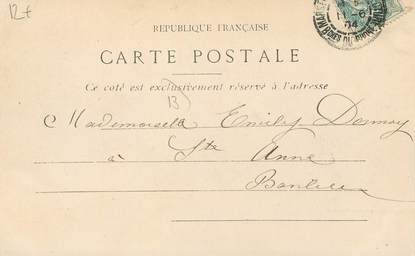 12+
RÉPUBLIQUE FRANÇAISE
CARTE POSTALE
Ce coté est exclusivement réservé à l'adresse
13
Mademoiselle Emily
à Ste Anne